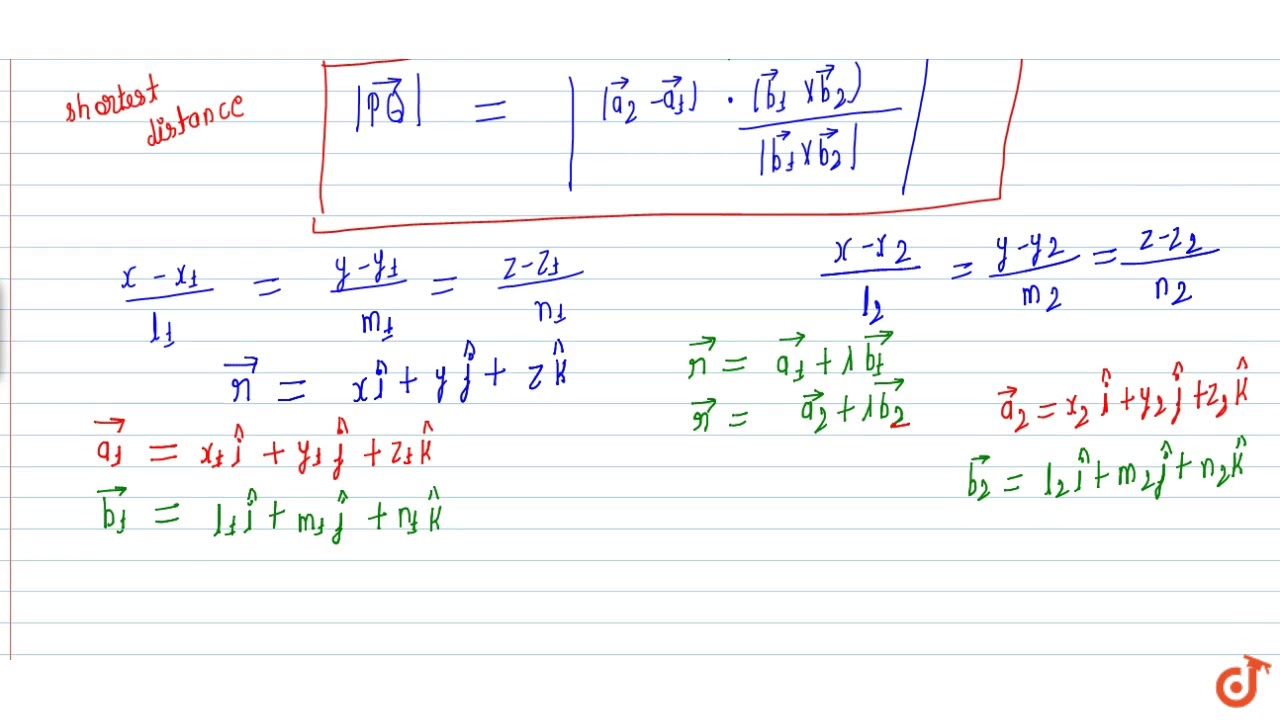 shortest distance
|PQ⃗| = |(a⃗2 - a⃗1) · (b⃗1 × b⃗2) / |b⃗1 × b⃗2||
(x - x1)/l1 = (y - y1)/m1 = (z - z1)/n1
(x - x2)/l2 = (y - y2)/m2 = (z - z2)/n2
r⃗ = xî + yĵ + zk̂
r⃗ = a⃗1 + λb⃗1
r⃗ = a⃗2 + λb⃗2
a⃗1 = x1î + y1ĵ + z1k̂
b⃗1 = l1î + m1ĵ + n1k̂
a⃗2 = x2î + y2ĵ + z2k̂
b⃗2 = l2î + m2ĵ + n2k̂